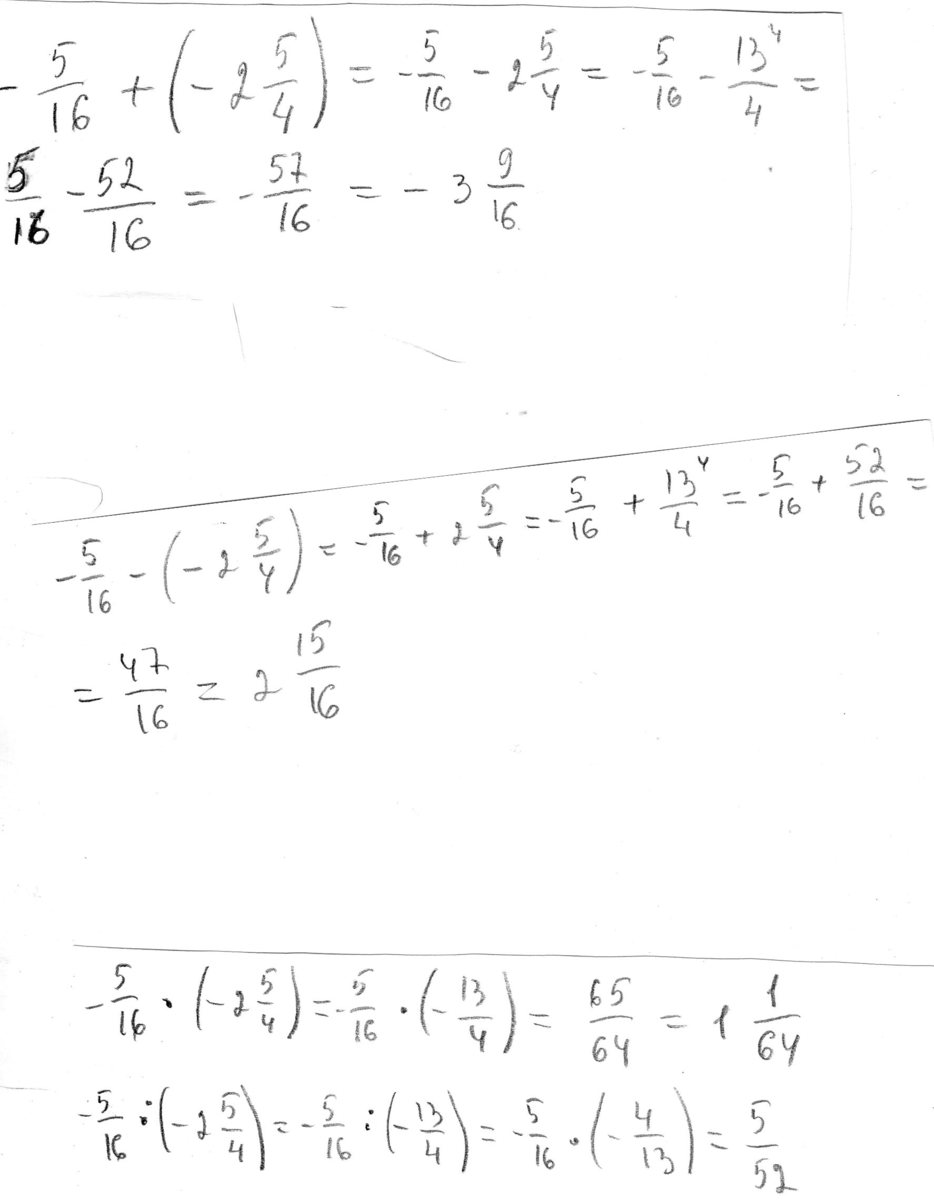 - 5/16 + (- 2 5/4) = - 5/16 - 2 5/4 = - 5/16 - 13⁴/4 =
5/16 - 52/16 = - 57/16 = - 3 9/16
- 5/16 - (- 2 5/4) = - 5/16 + 2 5/4 = - 5/16 + 13⁴/4 = - 5/16 + 52/16 =
= 47/16 = 2 15/16
- 5/16 · (- 2 5/4) = - 5/16 · (- 13/4) = 65/64 = 1 1/64
- 5/16 : (- 2 5/4) = - 5/16 : (- 13/4) = - 5/16 · (- 4/13) = 5/52